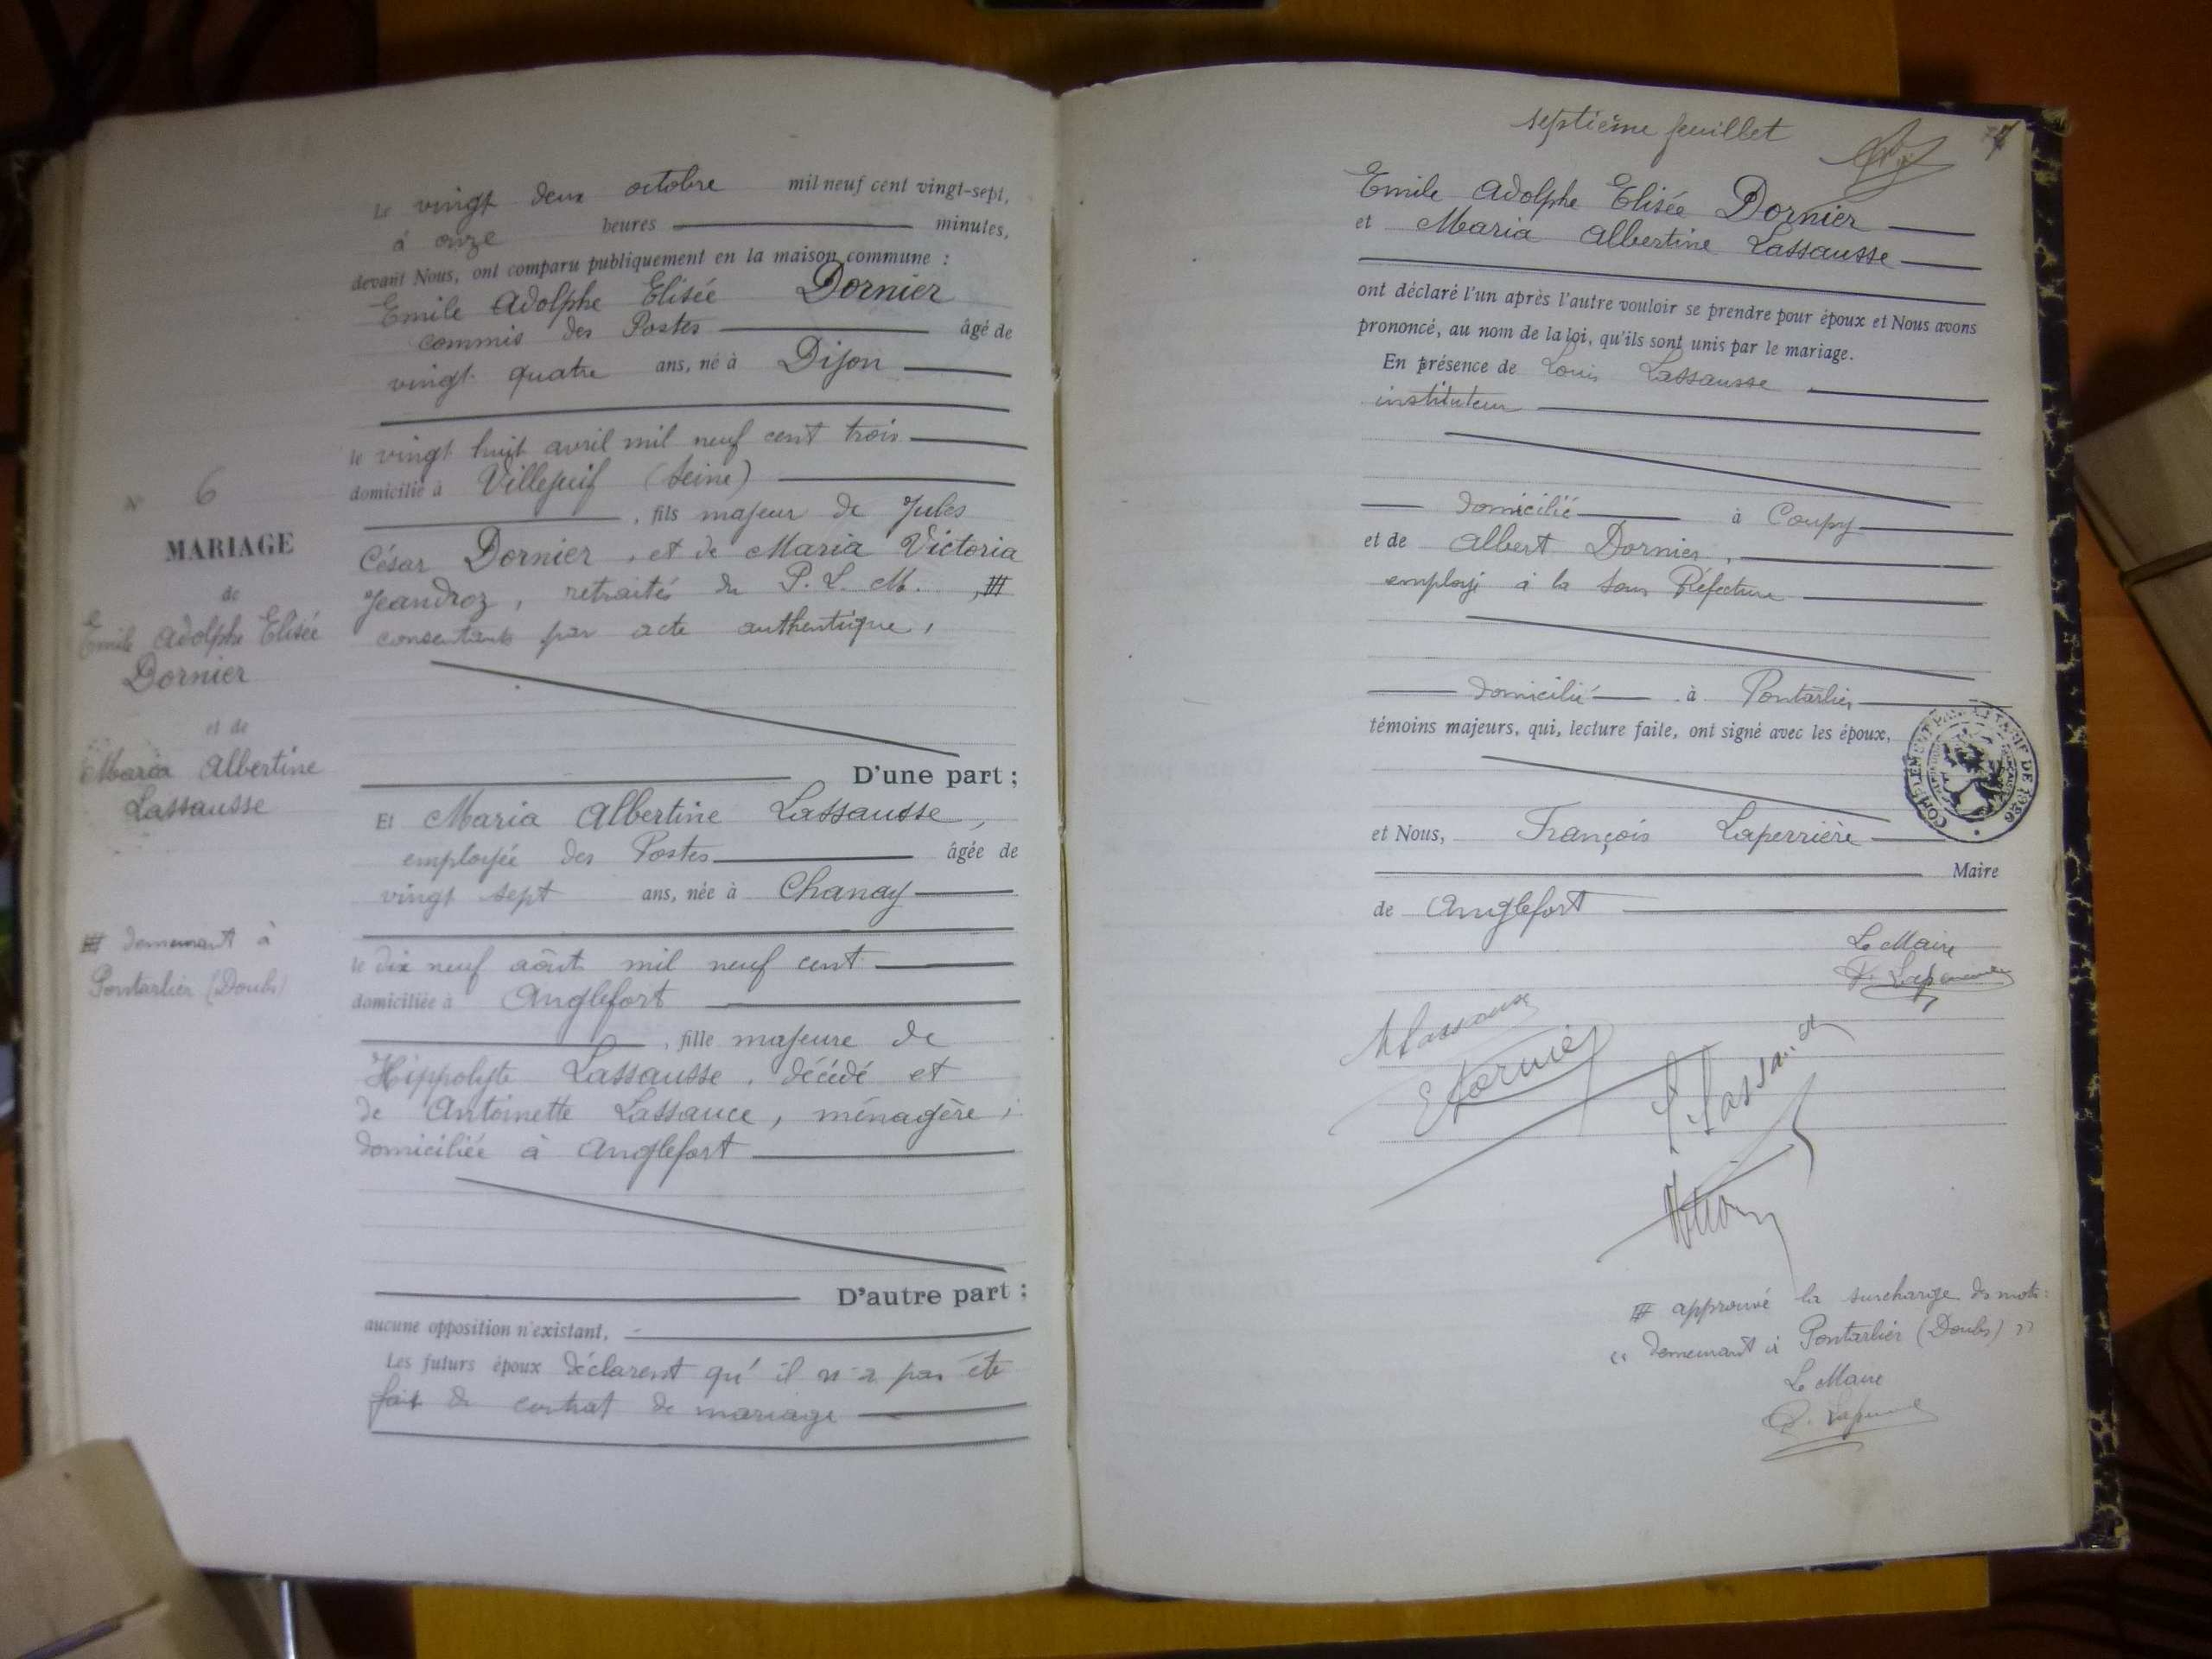 Le vingt deux octobre mil neuf cent vingt-sept,
à onze heures minutes,
devant Nous, ont comparu publiquement en la maison commune :
Emile Adolphe Elisée Dornier
commis des Postes âgé de
vingt quatre ans, né à Dijon
le vingt huit avril mil neuf cent trois
domicilié à Villejuif (Seine)
, fils majeur de Jules
César Dornier, et de Maria Victoria
Jeandroz, retraités du P. L. M. , #
consentants par acte authentique,
D'une part ;
Et Maria Albertine Lassausse,
employée des Postes âgée de
vingt sept ans, née à Chanay
le dix neuf août mil neuf cent
domiciliée à Anglefort
, fille majeure de
Hippolyte Lassausse, décédé et
de Antoinette Lassauce, ménagère,
domiciliée à Anglefort
D'autre part :
aucune opposition n'existant,
Les futurs époux déclarent qu'il n'a pas été
fait de contrat de mariage
N° 6
MARIAGE
de
Emile Adolphe Elisée
Dornier
et de
Maria Albertine
Lassausse
# demeurant à
Pontarlier (Doubs)
septième feuillet 7
Emile Adolphe Elisée Dornier
et Maria Albertine Lassausse
ont déclaré l'un après l'autre vouloir se prendre pour époux et Nous avons
prononcé, au nom de la loi, qu'ils sont unis par le mariage.
En présence de Louis Lassausse
instituteur
domicilié à Coupy
et de Albert Dornier,
employé à la Sous Préfecture
domicilié à Pontarlier
témoins majeurs, qui, lecture faite, ont signé avec les époux,
COMPLÉMENT DE 1926
et Nous, François Laperrière
Maire
de Anglefort
Le Maire
F. Laperrière
M Lassausse
E Dornier
L Lassausse
# approuvé la surcharge des mots :
"demeurant à Pontarlier (Doubs)"
Le Maire
F. Laperrière